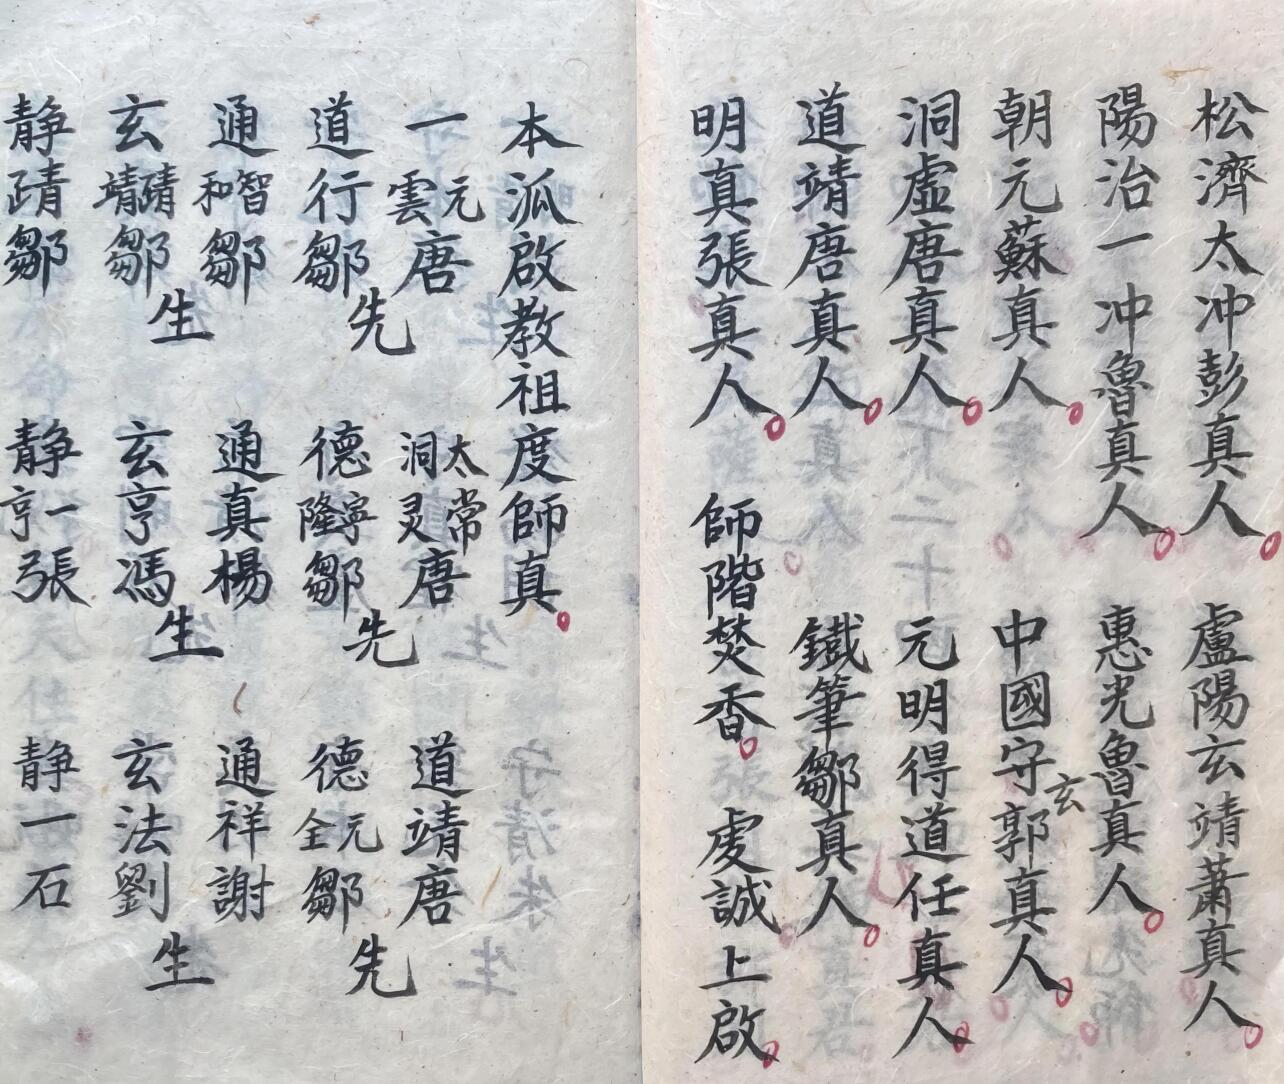 松濟太冲彭真人 盧陽玄靖蕭真人
陽治一冲魯真人 惠光魯真人
朝元蘇真人 中國守玄郭真人
洞虛唐真人 元明得道任真人
道靖唐真人 鐵筆鄒真人
明真張真人 師階焚香 虔誠上啟
本派啟教祖度師真
一元雲唐 太常洞灵唐 道靖唐
道行鄒 德寧隆鄒 德元全鄒
先 先 先
通智和鄒 通真楊 通祥謝
玄靖鄒 玄亨馮 玄法劉
生 生 生
静鄒 静一亨張 静一石